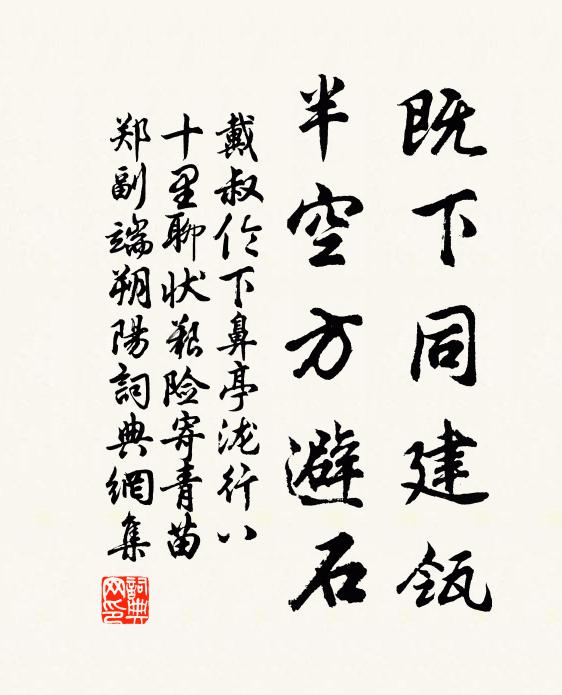 既下同建瓴
半空方避石
戴叔伦下鼻亭泷行八
十里聊状艰险寄青苗
郑副端朔陽詞典網集
詞典網印